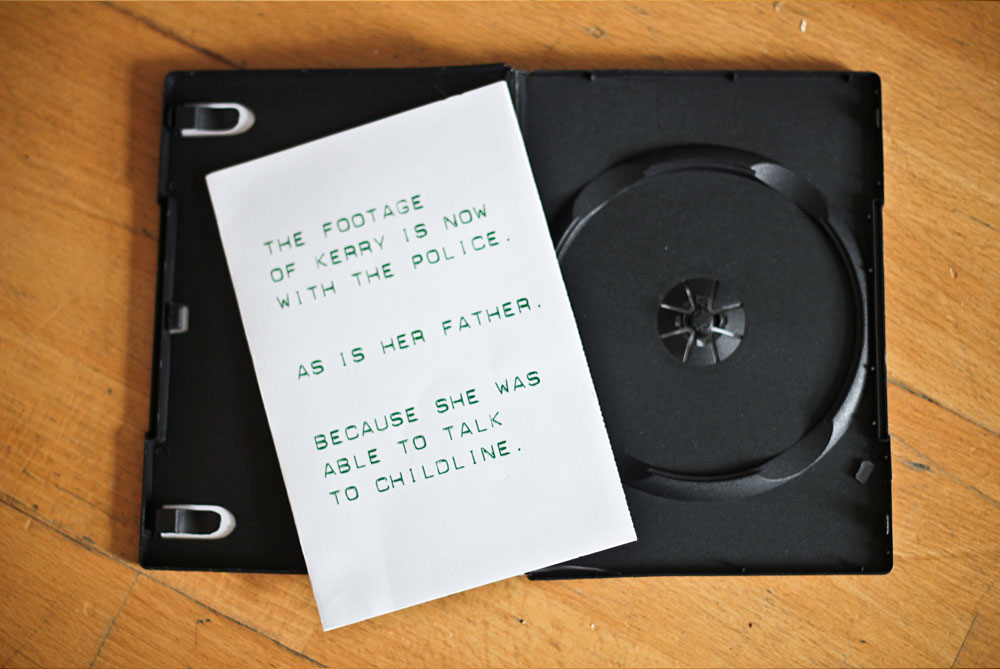 THE FOOTAGE
OF KERRY IS NOW
WITH THE POLICE.
AS IS HER FATHER.
BECAUSE SHE WAS
ABLE TO TALK
TO CHILDLINE.